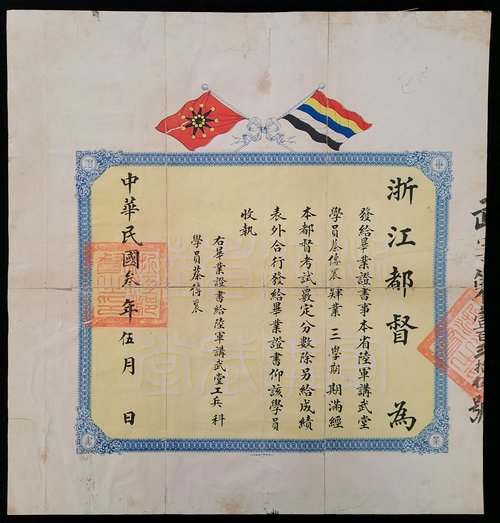 浙江都督 為
發給畢業證書事本省陸軍講武堂
學員蔡傳 肄業三學期期滿經
本都督考試最定分數除另給成績
表外合行發給畢業證書仰該學員
收執
右畢業證書給陸軍講武堂工兵科
學員蔡傳
中華民國叁年伍月 日